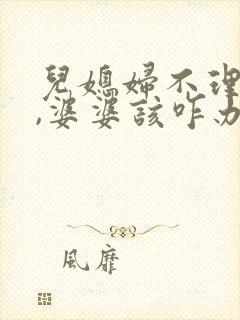 兒媳婦不理
,婆婆該咋办
風靡